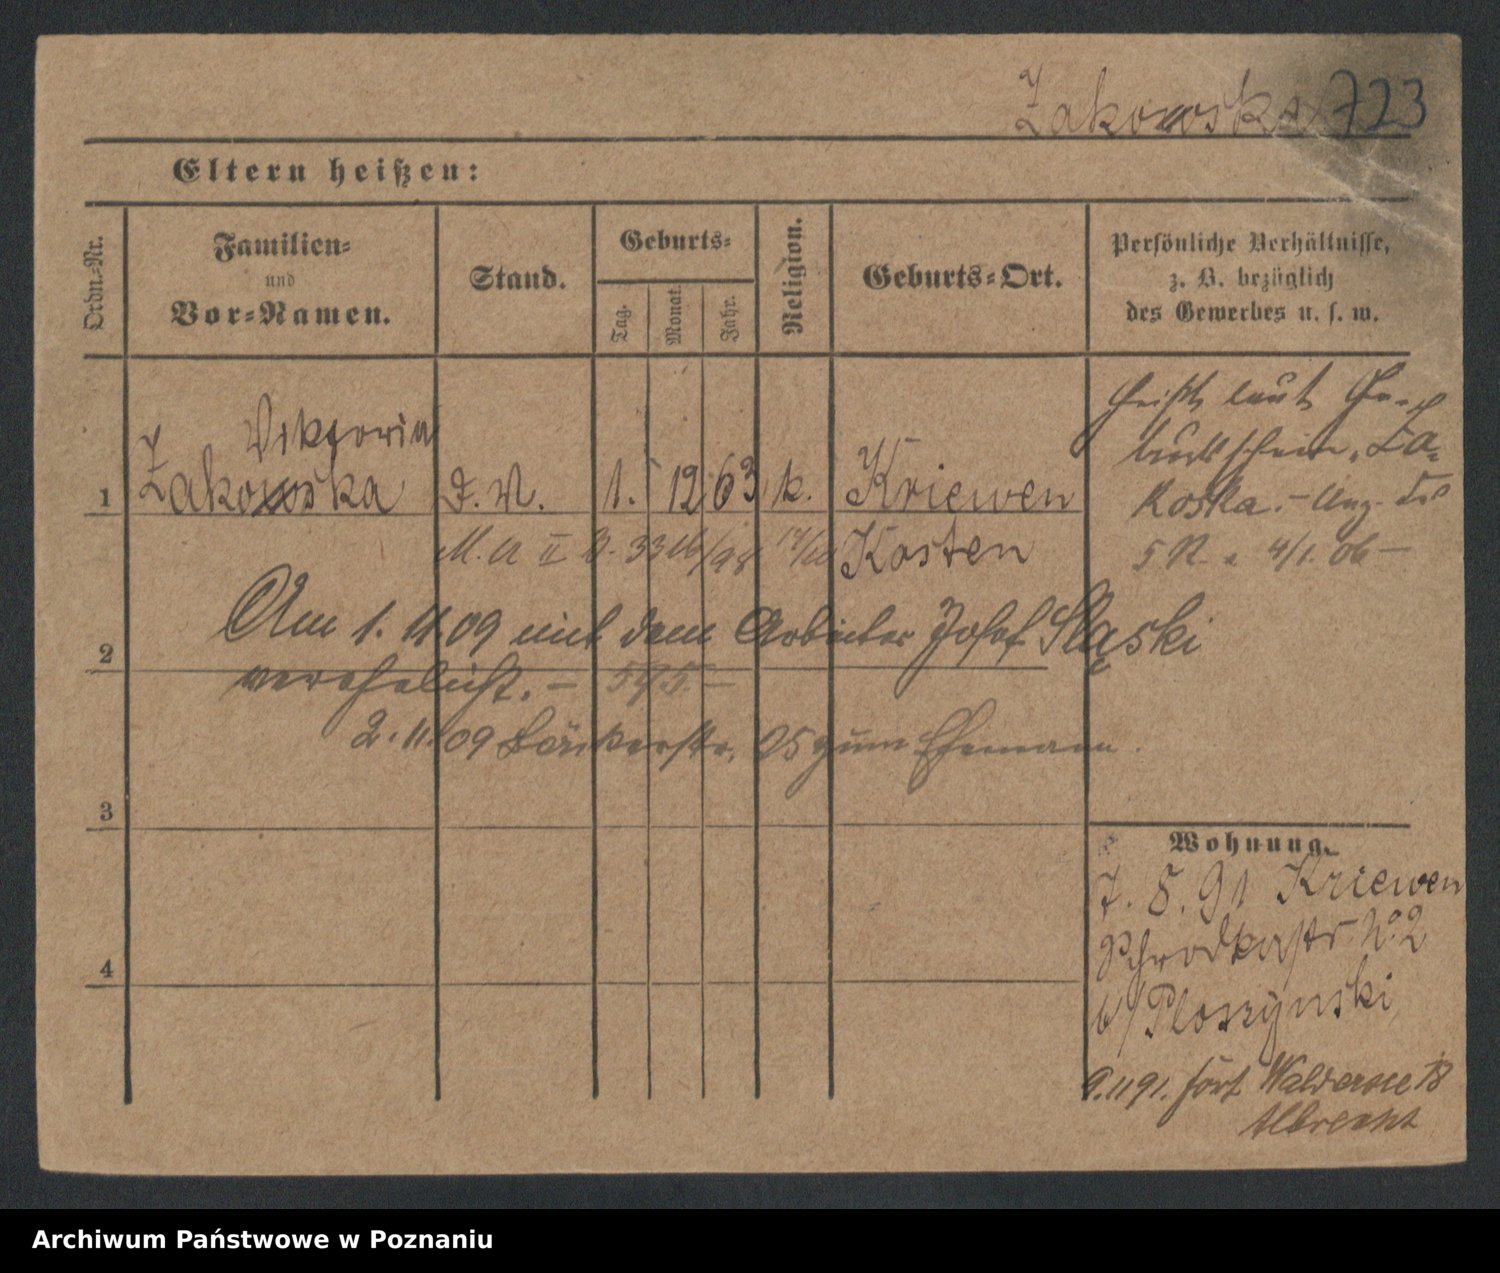 Zakowska 723
Eltern heißen:
Ordn.=Nr.
Familien=
und
Vor=Namen.
Stand.
Geburts=
Tag.
Monat.
Jahr.
Religion.
Geburts=Ort.
Persönliche Verhältnisse,
z. B. bezüglich
des Gewerbes u. s. w.
1
Viktoria
Zakowska
D. M.
1. 12 63
k.
Kriewen
Kosten
heißt laut Ge-
burtsschein „Za-
koska. – Anz. des
5 R. 4/1. 06 –
2
Am 1. 11. 09 mit dem Arbeiter Josef Sląski
verehelicht. –
2. 11. 09 Bäckerstr. 25 zum Ehemann.
3
4
Wohnung.
7. 8. 91 Kriewen
Schrodkastr. No. 2
b/ Ploszynski
9. 11 91. fort Waldersee 18
Albrecht
Archiwum Państwowe w Poznaniu